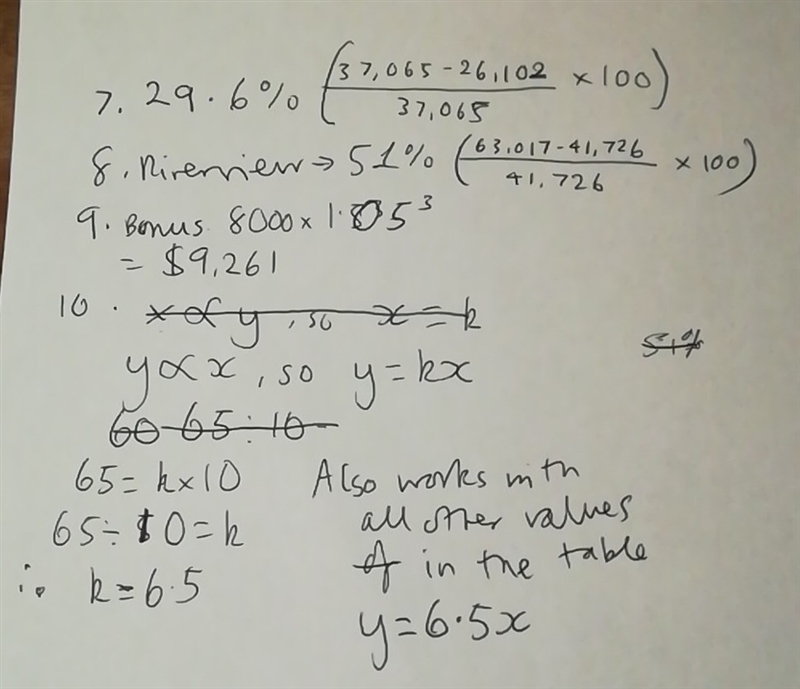 7. 29.6% (37,065-26,102/37,065 ×100)
8. Riverview → 51% (63,017-41,726/41,726 ×100)
9. Bonus 8000×1.05³
= $9,261
10. x∝y, so x=k
51%
y∝x, so y=kx
60 65:10
65=k×10
65÷10=k
∴ k=6.5
Also works with
all other values
of in the table
y=6.5x